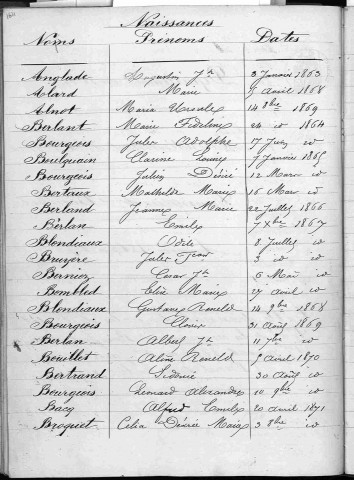 Naissances
Noms Prénoms Dates
Anglade Augustin Jh 3 Janvier 1863
Alard Marie 9 avril 1868
Alnot Maria Ursule 14 8bre 1869
Berlant Marie Fideline 24 id 1864
Bourgeois Jules Adolphe 17 Juin id
Boulquain Clarine Louise 7 Janvier 1865
Bourgeois Julien Désiré 12 Mars id
Bertaux Mathilde Marie 16 Mai id
Berland Jeanne Marie 22 Juillet 1866
Berlan Emile 7 Xbre 1867
Blondiaux Odile 8 Juillet id
Bruyère Jules Jean 3 id id
Bernier Cesar Jh 6 Mai id
Bombled Elise Marie 27 avril id
Blondiaux Gustave Renelde 14 9bre 1868
Bourgeois Clovis 31 Août 1869
Berlan Albert Jh 11 7bre id
Bouillot Aline Renelde 9 avril 1870
Bertrand Sidonie 30 Août id
Bourgeois Leonard Alexandre 10 9bre id
Bacq Alfred Emile 20 avril 1871
Broquet Celia Désirée Marie 3 8bre id